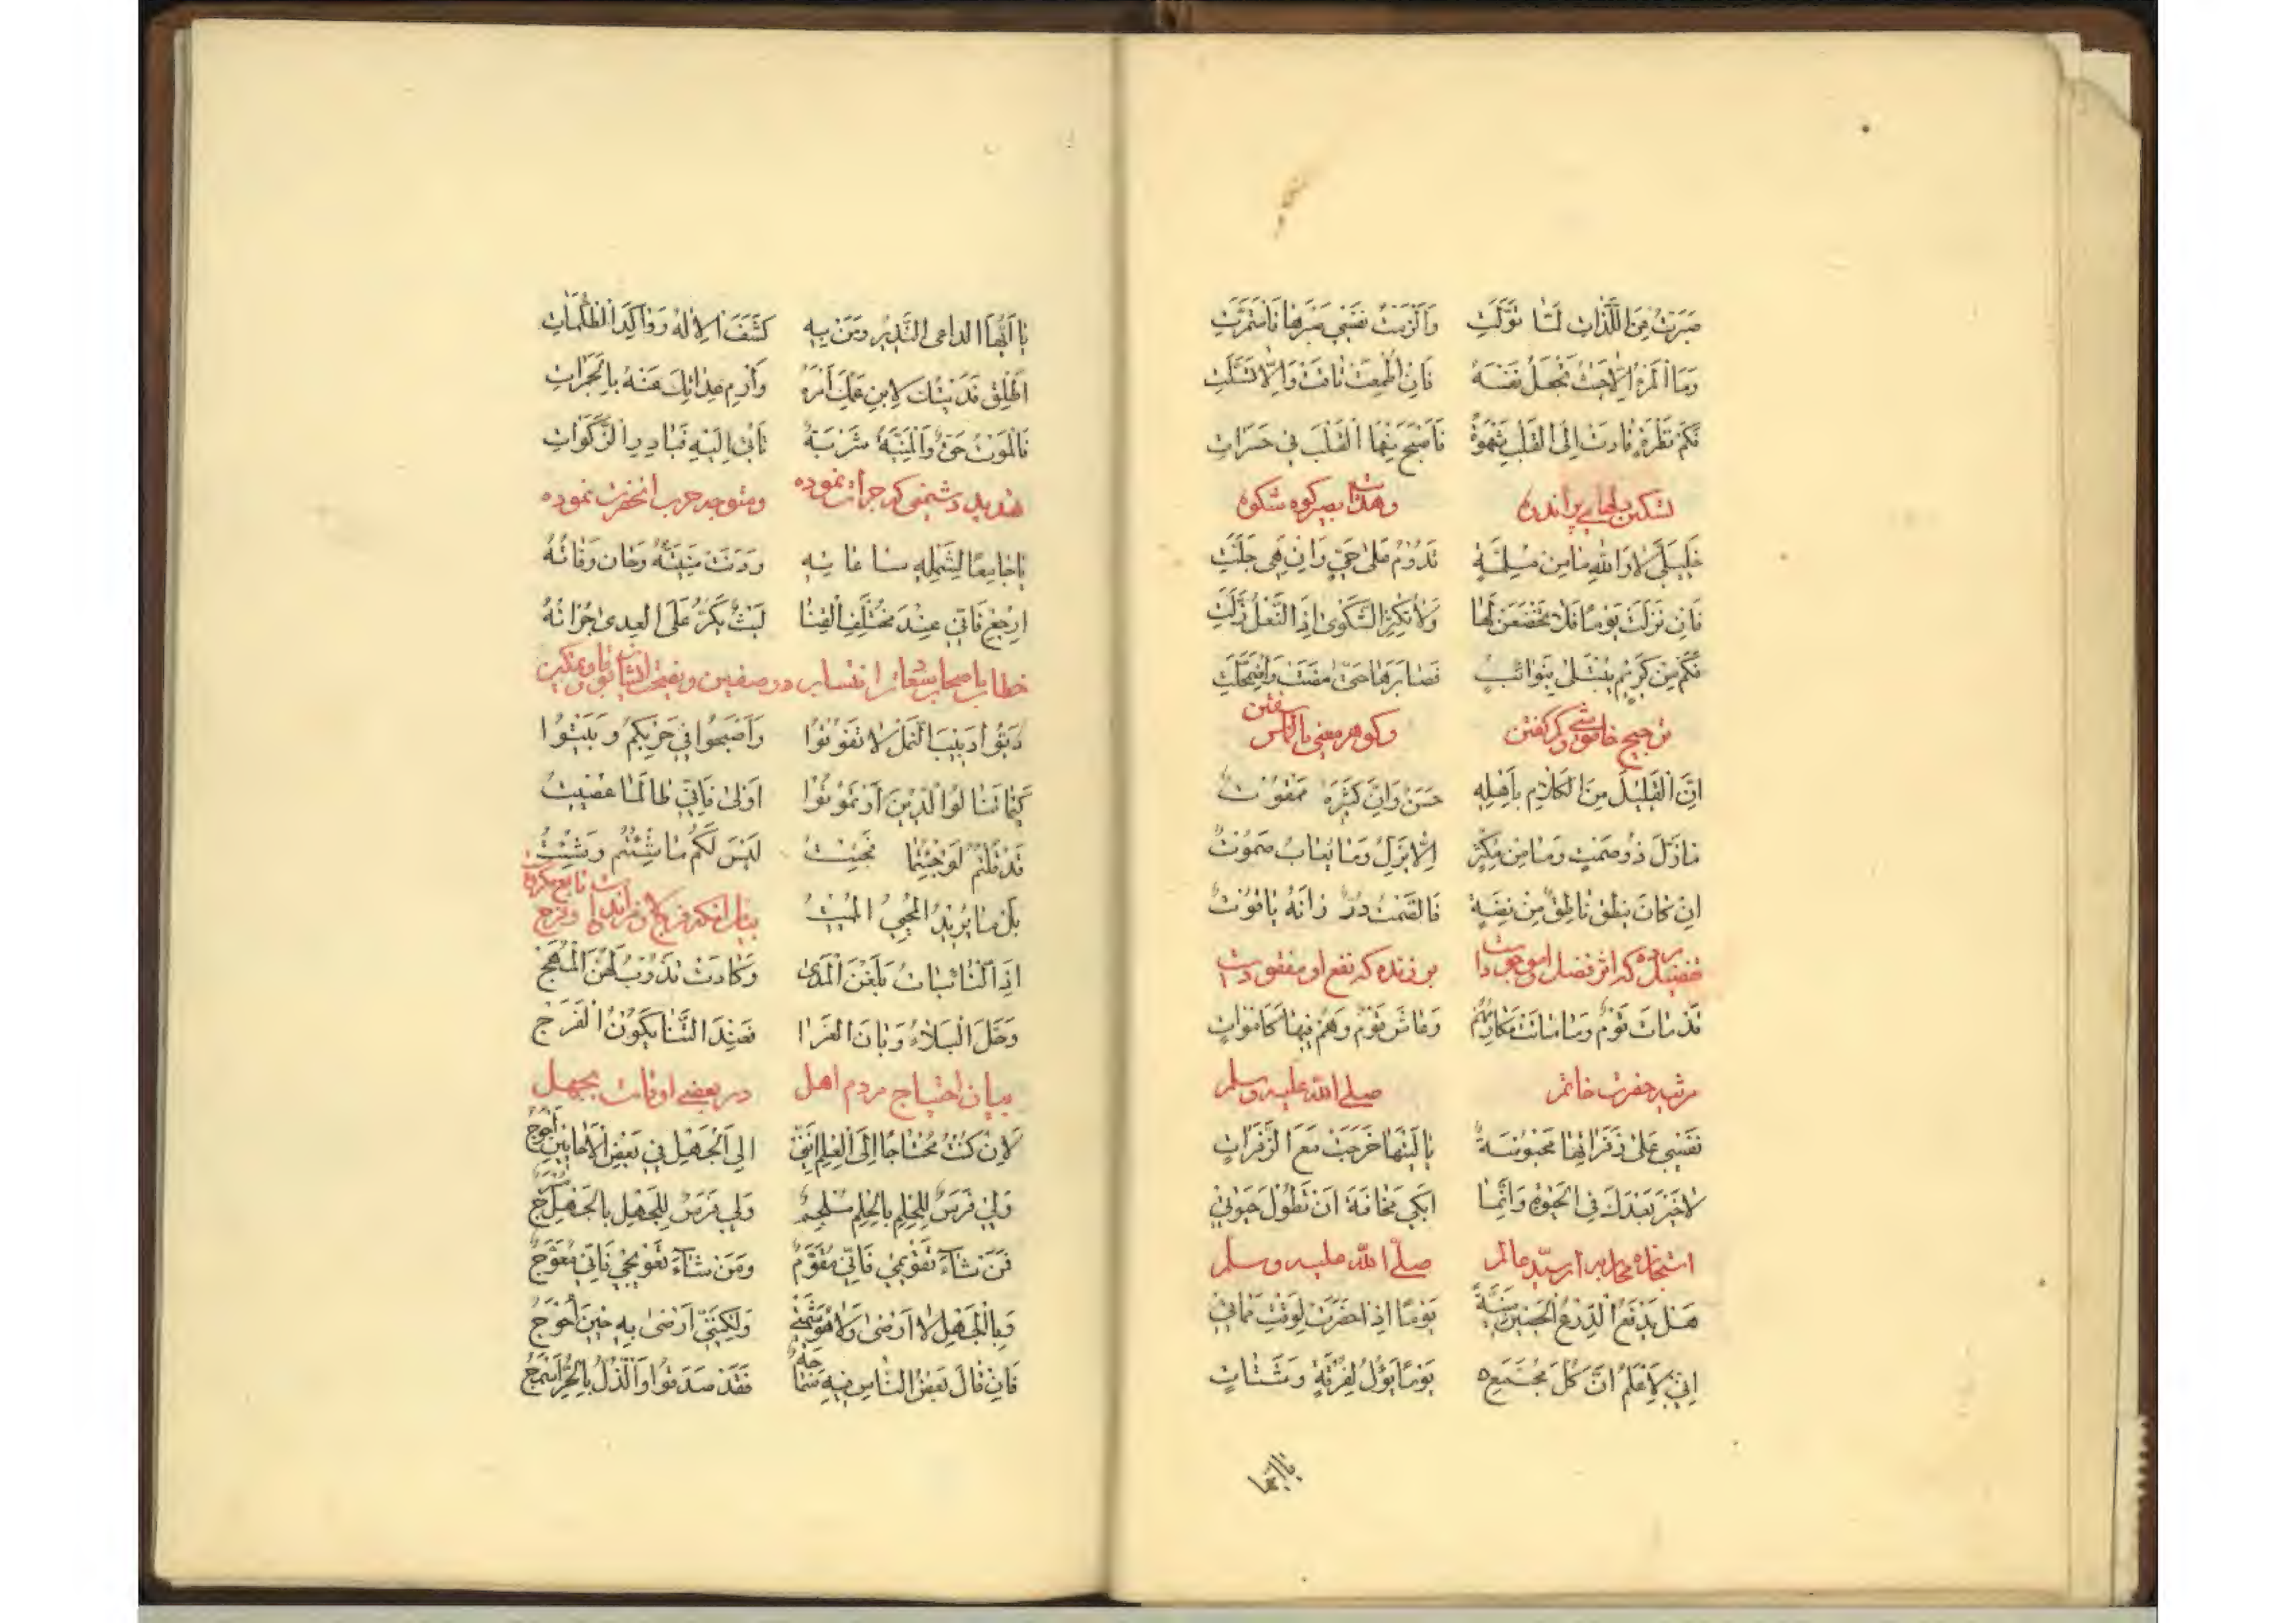 صَبَرْتُ مِنَ اللَّذَّاتِ لَمَّا تَوَلَّتِ وَأَلْزَمْتُ نَفْسِي صَبْرَهَا فَاسْتَمَرَّتِ
وَمَا الْمَرْءُ إِلَّا حَيْثُ يَجْعَلُ نَفْسَهُ فَإِنْ أُطْمِعَتْ تَاقَتْ وَإِلَّا تَسَلَّتِ
فَكَمْ نَظْرَةٍ قَادَتْ إِلَى الْقَلْبِ شَهْوَةً فَأَصْبَحَ مِنْهَا الْقَلْبُ فِي حَسَرَاتِ
تسکین دلهای پراندوه
خَلِيلَيَّ لَا وَاللهِ مَا مِنْ مُلِمَّةٍ تَدُومُ عَلَى حَيٍّ وَإِنْ هِيَ جَلَّتِ
فَإِنْ نَزَلَتْ يَوْمًا فَلَا تَخْضَعَنْ لَهَا وَلَا تُكْثِرِ الشَّكْوَى إِذَا النَّعْلُ زَلَّتِ
فَكَمْ مِنْ كَرِيمٍ يُبْتَلَى بِنَوَائِبٍ فَصَابَرَهَا حَتَّى مَضَتْ وَاضْمَحَلَّتِ
ترجیح خاموشی بر گفتن وگوهر معنی بالماس سفتن
إِنَّ الْقَلِيلَ مِنَ الْكَلَامِ بِأَهْلِهِ حَسَنٌ وَإِنَّ كَثِيرَهُ مَمْقُوتٌ
مَا زَلَّ ذُو صَمْتٍ وَمَا مِنْ مُكْثِرٍ إِلَّا يَزِلُّ وَمَا يُعَابُ صَمُوتٌ
إِنْ كَانَ يَنْطِقُ نَاطِقٌ مِنْ فِضَّةٍ فَالصَّمْتُ دُرٌّ زَانَهُ يَاقُوتٌ
تفضیل مرده که اثر فضل او موجودست بر زنده که نفع او مفقودست
قَدْ مَاتَ قَوْمٌ وَمَا مَاتَتْ مَكَارِمُهُمْ وَعَاشَ قَوْمٌ وَهُمْ فِيهَا كَأَمْوَاتِ
مرثیه حضرت خاتم صلی الله علیه وسلم
نَفْسِي عَلَى زَفَرَاتِهَا مَحْبُوسَةٌ يَا لَيْتَهَا خَرَجَتْ مَعَ الزَّفَرَاتِ
لَا خَيْرَ بَعْدَكَ فِي الْحَيٰوةِ وَإِنَّمَا أَبْكِي مَخَافَةَ أَنْ تَطُولَ حَيٰوتِي
صلّی الله علیه وسلم
هَلْ يَدْفَعُ الدِّرْعُ الْحَصِينُ مَنِيَّةً يَوْمًا إِذَا حَضَرَتْ لِوَقْتِ مَمَاتِي
إِنِّي لَأَعْلَمُ أَنَّ كُلَّ مُجْتَمِعٍ يَوْمًا يَؤُولُ لِفُرْقَةٍ وَشَتَاتِ
یا ایها
يَا أَيُّهَا الدَّاعِي النَّذِيرُ وَمَنْ بِهِ كَشَفَ الْإِلٰهُ رَوَاكِدَ الظُّلُمَاتِ
أَطْلِقْ فَدَيْتُكَ لِابْنِ عَمِّكَ أَمْرَهُ وَارْمِ عِدَاتَكَ عَنْهُ بِالْجَمَرَاتِ
فَالْمَوْتُ حَقٌّ وَالْمَنِيَّةُ شَرْبَةٌ تَأْتِي إِلَيْهِ فَبَادِرِ الزَّكَوَاتِ
تهدید دشمنی که جرأت نموده ومتوجه حرب آنحضرت نموده
يَا جَامِعًا لِشَمْلِهِ سَاعَاتِهِ وَدَنَتْ مَنِيَّتُهُ وَحَانَ وَفَاتُهُ
ارْجِعْ فَإِنِّي عِنْدَ مُخْتَلِفِ الْقَنَا لَيْثٌ يَكُرُّ عَلَى الْعِدَى جُرْأَتُهُ
دَبُّوا دَبِيبَ النَّمْلِ لَا تَفُوتُوا وَأَصْبِحُوا فِي حَرْبِكُمْ وَبَيِّتُوا
كَيْمَا تَنَالُوا الدِّينَ أَوْ تَمُوتُوا أَوْ لَا فَإِنِّي طَالَمَا عُصِيتُ
قَدْ قُلْتُمْ لَوْ جِئْتَنَا فَجِيتُ لَيْسَ لَكُمْ مَا شِئْتُمْ وَشِيتُ
بَلْ مَا يُرِيدُ الْمُحْيِي الْمُمِيتُ
إِذَا النَّائِبَاتُ بَلَغْنَ الْمَدَى وَكَادَتْ تَذُوبُ لَهُنَّ الْمُهَجُ
وَحَلَّ الْبَلَاءُ وَبَانَ الْعَزَا فَعِنْدَ التَّنَاهِي يَكُونُ الْفَرَجُ
بیان احتیاج مردم اهل در بعضی اوقات بجهل
لَئِنْ كُنْتُ مُحْتَاجًا إِلَى الْعِلْمِ إِنَّنِي إِلَى الْجَهْلِ فِي بَعْضِ الْأَحَايِينِ أَحْوَجُ
وَلِي فَرَسٌ لِلْحِلْمِ بِالْحِلْمِ مُلْجَمٌ وَلِي فَرَسٌ لِلْجَهْلِ بِالْجَهْلِ مُسْرَجُ
فَمَنْ شَاءَ تَقْوِيمِي فَإِنِّي مُقَوَّمٌ وَمَنْ شَاءَ تَعْوِيجِي فَإِنِّي مُعَوَّجُ
وَبِالْجَهْلِ لَا أَرْضَى وَلَا هُوَ شِيمَتِي وَلَكِنَّنِي أَرْضَى بِهِ حِينَ أُحْوَجُ
فَإِنْ قَالَ بَعْضُ النَّاسِ فِيهِ سَمَاجَةٌ فَقَدْ صَدَقُوا وَالذُّلُّ بِالْحُرِّ أَسْمَجُ